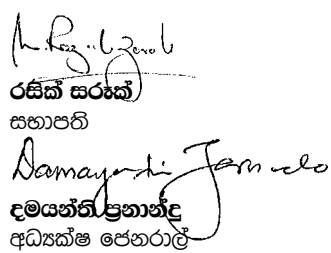 රසික් සරූක්
සභාපති
Damayanthi Fernando
දමයන්ති ප්‍රනාන්දු
අධ්‍යක්ෂ ජෙනරාල්